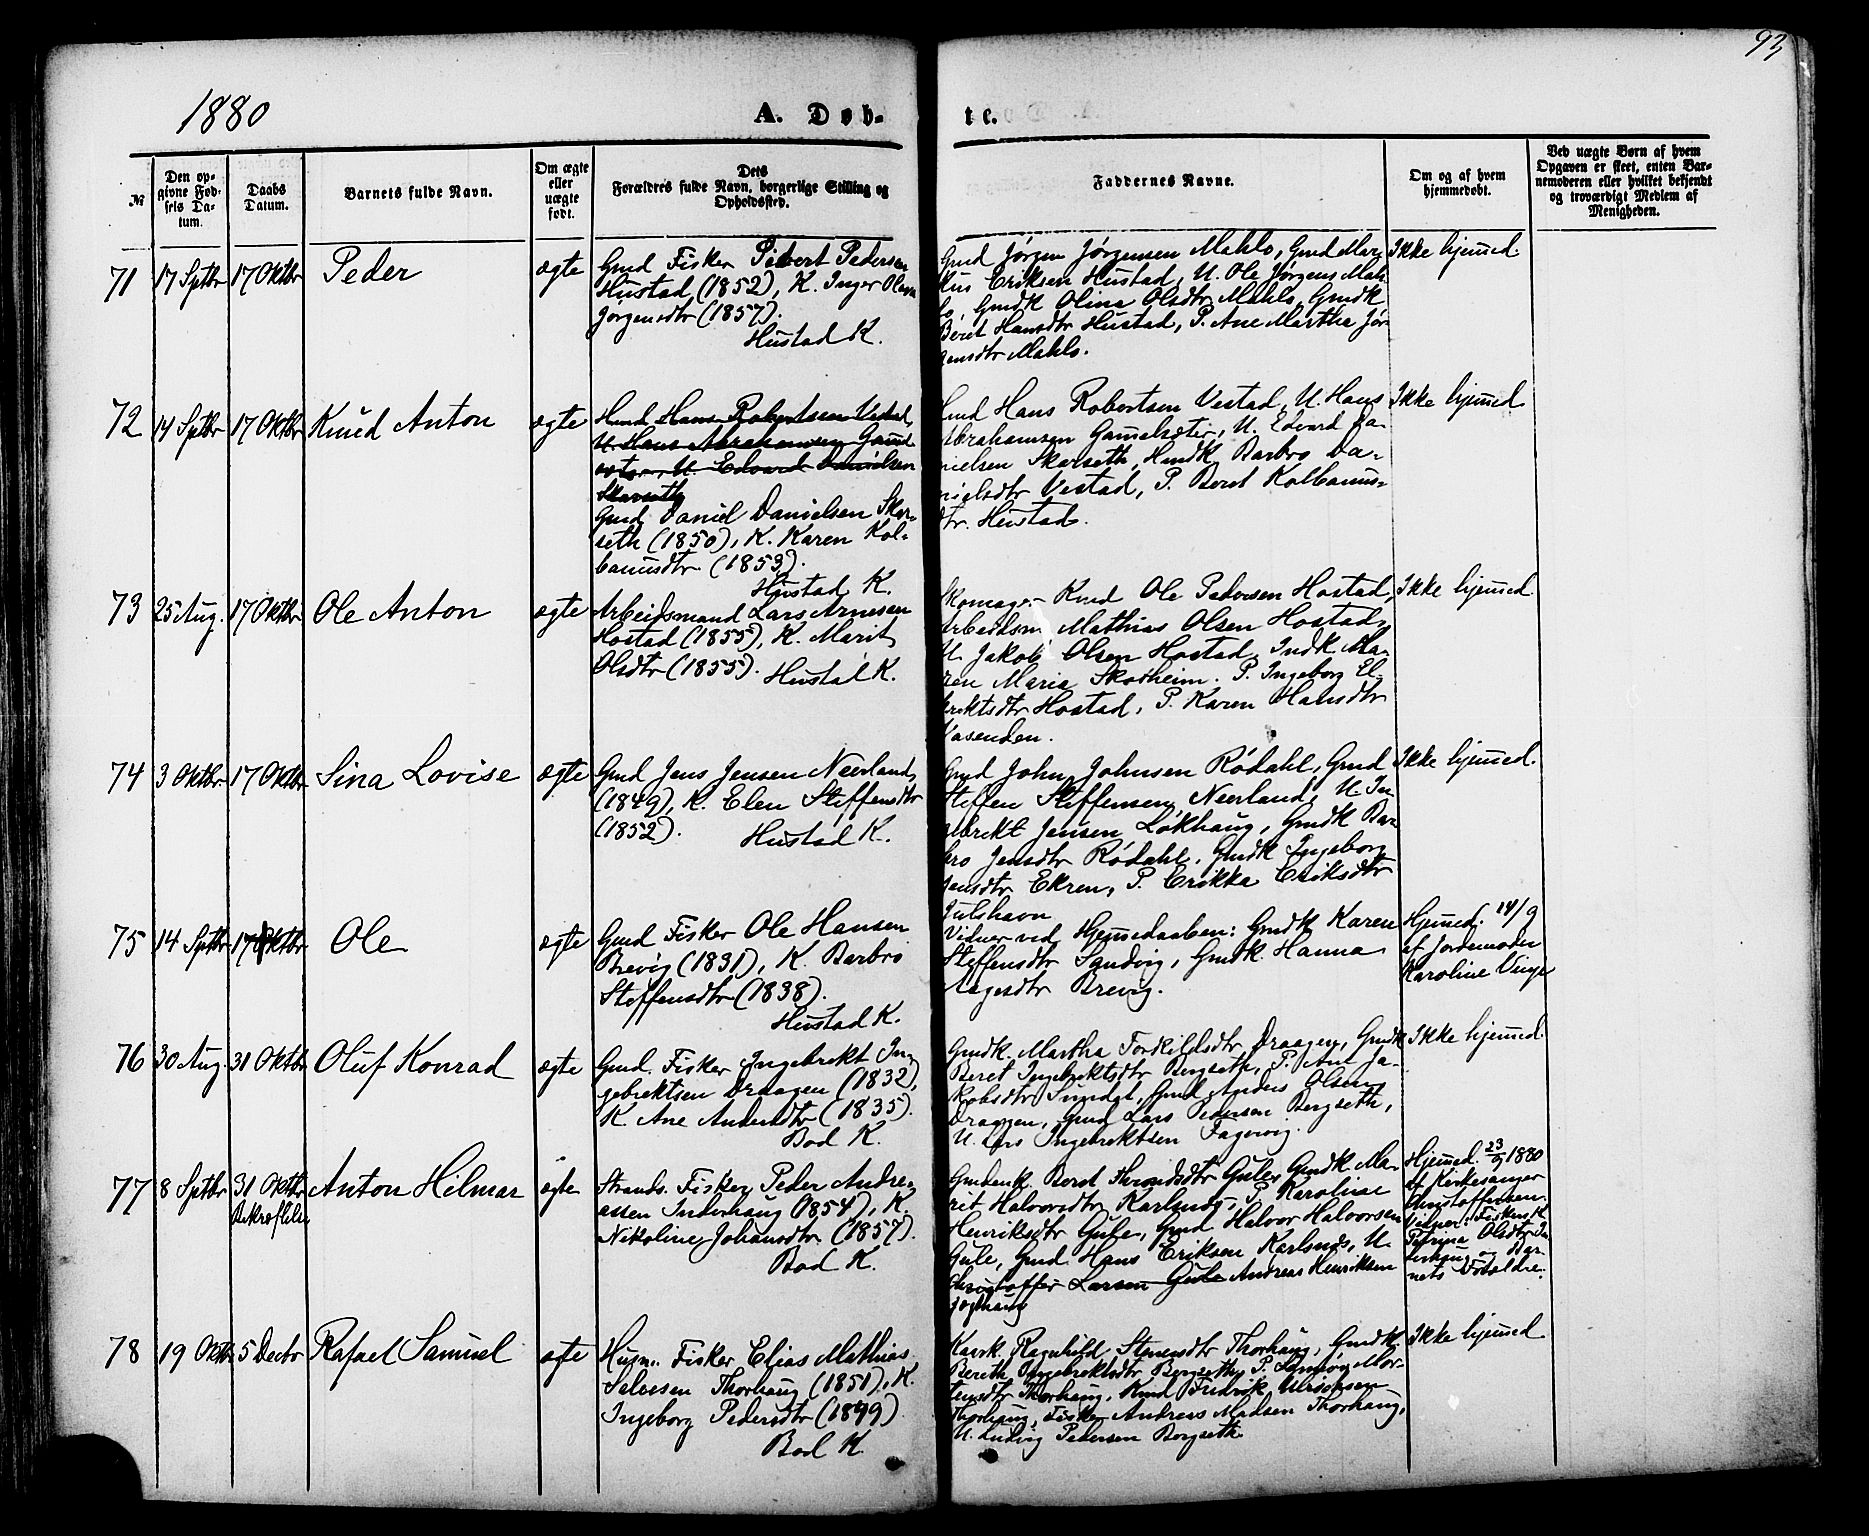 93
1880
A. Døb-
te.
№
Den opgivne Fødsels Datum.
Daabs Datum.
Barnets fulde Navn.
Om ægte eller uægte født.
Dets Forældres fulde Navn, borgerlige Stilling og Opholdssted.
Faddernes Navne.
Om og af hvem hjemmedøbt.
Ved uægte Børn af hvem Opgaven er skeet, enten Barnemoderen eller hvilket bekjendt og troværdigt Medlem af Menigheden.
71 17 Sptbr 17 Oktbr Peder ægte
Gmd Fisker Pedersen
Hustad (1852), K. Inger Olava
Jørgensdtr (1857).
Hustad K.
Gmd Jørgen Jørgensen Mahlo, Gmd Mar-
kus Eriksen Hustad, U. Ole Jørgens Mah-
lo, Gmdk Olina Olsdtr Mahlo, Gmdk
Beret Hansdtr Hustad, P. Ane Martha Jør-
gensdtr Mahlo.
Ikke hjemmed.
72 14 Sptbr 17 Oktbr Knud Anton ægte
Hmd Hans Robertsen Vestad,
U. Hans Abrahamsen Gamel-
sæter, U. Edvard Danielsen
Skarseth
Gmd Daniel Danielsen Skar-
seth (1850), K. Karen Kol-
banusdtr (1853).
Hustad K.
Hmd Hans Robertsen Vestad, U. Hans
Abrahamsen Gamelsæter, U. Edvard Da-
nielsen Skarseth, Hmdk Barbro Da-
nielsdtr Vestad, P. Beret Kolbanus-
dtr. Hustad.
Ikke hjemmed
73 25 Aug. 17 Oktbr Ole Anton ægte
Arbeidsmand Lars Arnesen
Hostad (1855), K. Marit
Olsdtr (1855). Hustad K.
Skomager Knud Ole Pedersen Hostad,
Arbeidsm Mathias Olsen Hostad,
U. Jakob Olsen Hostad, Indk Ma-
ren Maria Skotheim. P. Ingeborg El-
brektsdtr Hostad, P. Karen Hansdtr
Vasenden.
Ikke hjemmed
74 3 Oktbr. 17 Oktbr Sina Lovise ægte
Gmd Jens Jensen Neerland
(1849), K. Elen Steffensdtr
(1852). Hustad K.
Gmd John Johnsen Rødahl, Gmd
Steffen Steffensen Neerland, U. In-
gebrekt Jensen Løkhaug, Gmdk Bar-
bro Jensdtr Rødahl, Gmdk Ingeborg
Jensdtr Ekren, P. Erikka Eriksdtr
Julshavn
Ikke hjemmed.
75 14 Sptbr 17 Oktbr Ole ægte
Gmd Fisker Ole Hansen
Brevig (1831), K. Barbro
Steffensdtr (1838).
Hustad K.
Vidner ved Hjemedaaben: Gmdk Karen
Steffensdtr Sandvig, Gmdk. Hanna
Aagesdtr Brevig.
Hjemed. 14/9
af Jordemoder
Karoline Vinje
76 30 Aug. 31 Oktbr Oluf Konrad ægte
Gmd. Fisker Ingebrekt In-
gebrektsen Draagen (1832),
K Ane Andersdtr (1835).
Bod K.
Gmdk. Martha Torkildsdtr Draagen, Gmdk
Beret Ingebrektsdtr Bergseth, P. Ane Ja-
kobsdtr Sundet, Gmd Anders Olsen
Draagen, Gmd Lars Pedersen Bergseth,
U. Lars Ingebrektsen Fagervig.
Ikke hjemmed.
77 8 Sptbr 31 Oktbr Anton Hilmar ægte
Bekræftelse
Strands. Fisker Peder Andre-
assen Inderhaug (1854), K.
Nikoline Johansdtr (1857).
Bod K.
Gmdenk. Beret Throndsdtr Gule, Gmdk Ma-
rit Halvorsdtr Karlsnæs, P. Karoline
Henriksdtr Gule, Gmd Halvor Halvorsen
Gule, Gmd Hans Eriksen Karlsnæs, U.
Christoffer Larsen Gule Andreas Henriksen
Hjemmed. 23/9 1880
af Kirkesanger
Christoffersen.
Vidner: Fisker K.
Petrina Olsdtr In-
derhaug og Bar-
nets Forældre.
78 19 Oktbr 5 Decbr Rafael Samuel ægte
Husm. Fisker Elias Mathias
Thorhaug (1851), K.
Ingeborg Pedersdtr (1849)
Bod K
Kaark. Ragnhild Stenersdtr Thorhaug, Gmdk
Bereth Ingebrektsdtr Bergseth, P. Mor-
tensdtr Thorhaug, Knud Fredrik Ulriksen
Thorhaug, Fisker Andreas Madsen Thorhaug,
U. Ludvig Pedersen Bergseth.
Ikke hjemmed